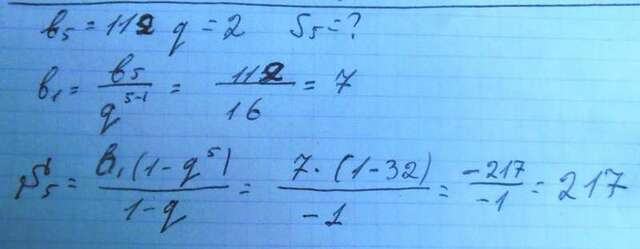 b₅ = 112 q = 2 S₅ = ?
b₁ = b₅/q⁵⁻¹ = 112/16 = 7
S₅ = b₁(1-q⁵)/1-q = 7·(1-32)/-1 = -217/-1 = 217